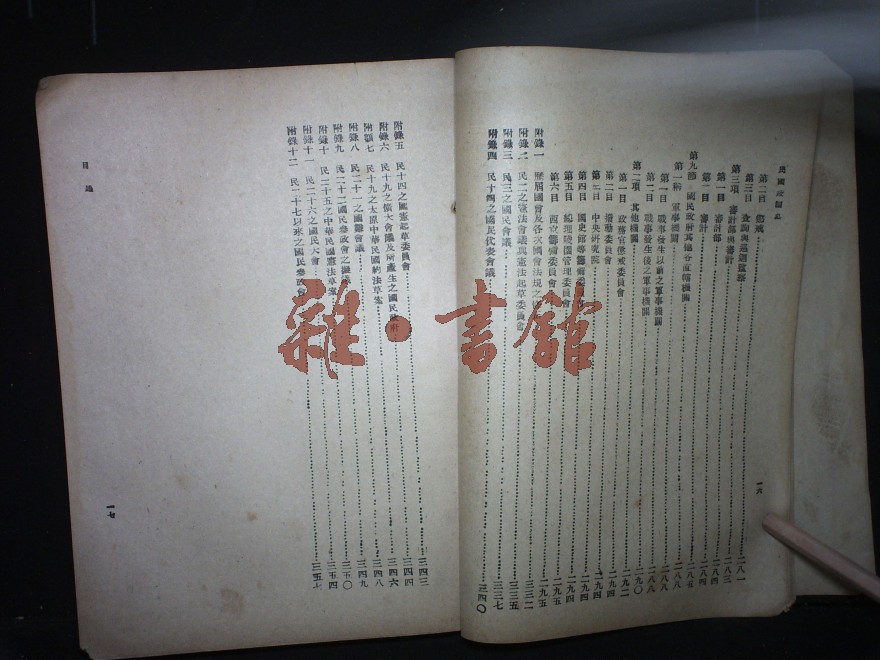 民國政制史
第二目 懲戒 二八一
第三目 二八三
第三項 審計部與審計 二八四
第一目 審計部 二八四
第二目 審計 二八五
第九節 國民政府其他各直轄機關 二八八
第一項 軍事機關 二八八
第一目 戰事發生以前之軍事機關 二八八
第二目 戰事發生後之軍事機關 二九〇
第二項 其他機關 二九二
第一目 政務官懲戒委員會 二九二
第二目 振動委員會 二九四
第三目 中央研究院 二九四
第四目 國史館籌備委員會 二九四
第五目 總理陵園管理委員會 二九五
第六目 西京籌備委員會 二九五
附錄一 歷屆國會及各次國會法規之 三三二
附錄二 民二之憲法會議與憲法起草委員會 三三五
附錄三 民三之國民會議 三三七
附錄四 民十四之國民代表會議 三四〇
一六
附錄五 民十四之國憲起草委員會 三四三
附錄六 民十九之擴大會議及所產生之國民政府 三四四
附錄七 民十九之太原中華民國約法草案 三四六
附錄八 民二十一之國難會議 三四八
附錄九 民二十二國民參政會之擬議 三四九
附錄十 民二十五之中華民國憲法草案 三五〇
附錄十一 民二十六之國民大會 三五四
附錄十二 民二十七以來之國民參政會 三五七
目錄
一七
雜·書館